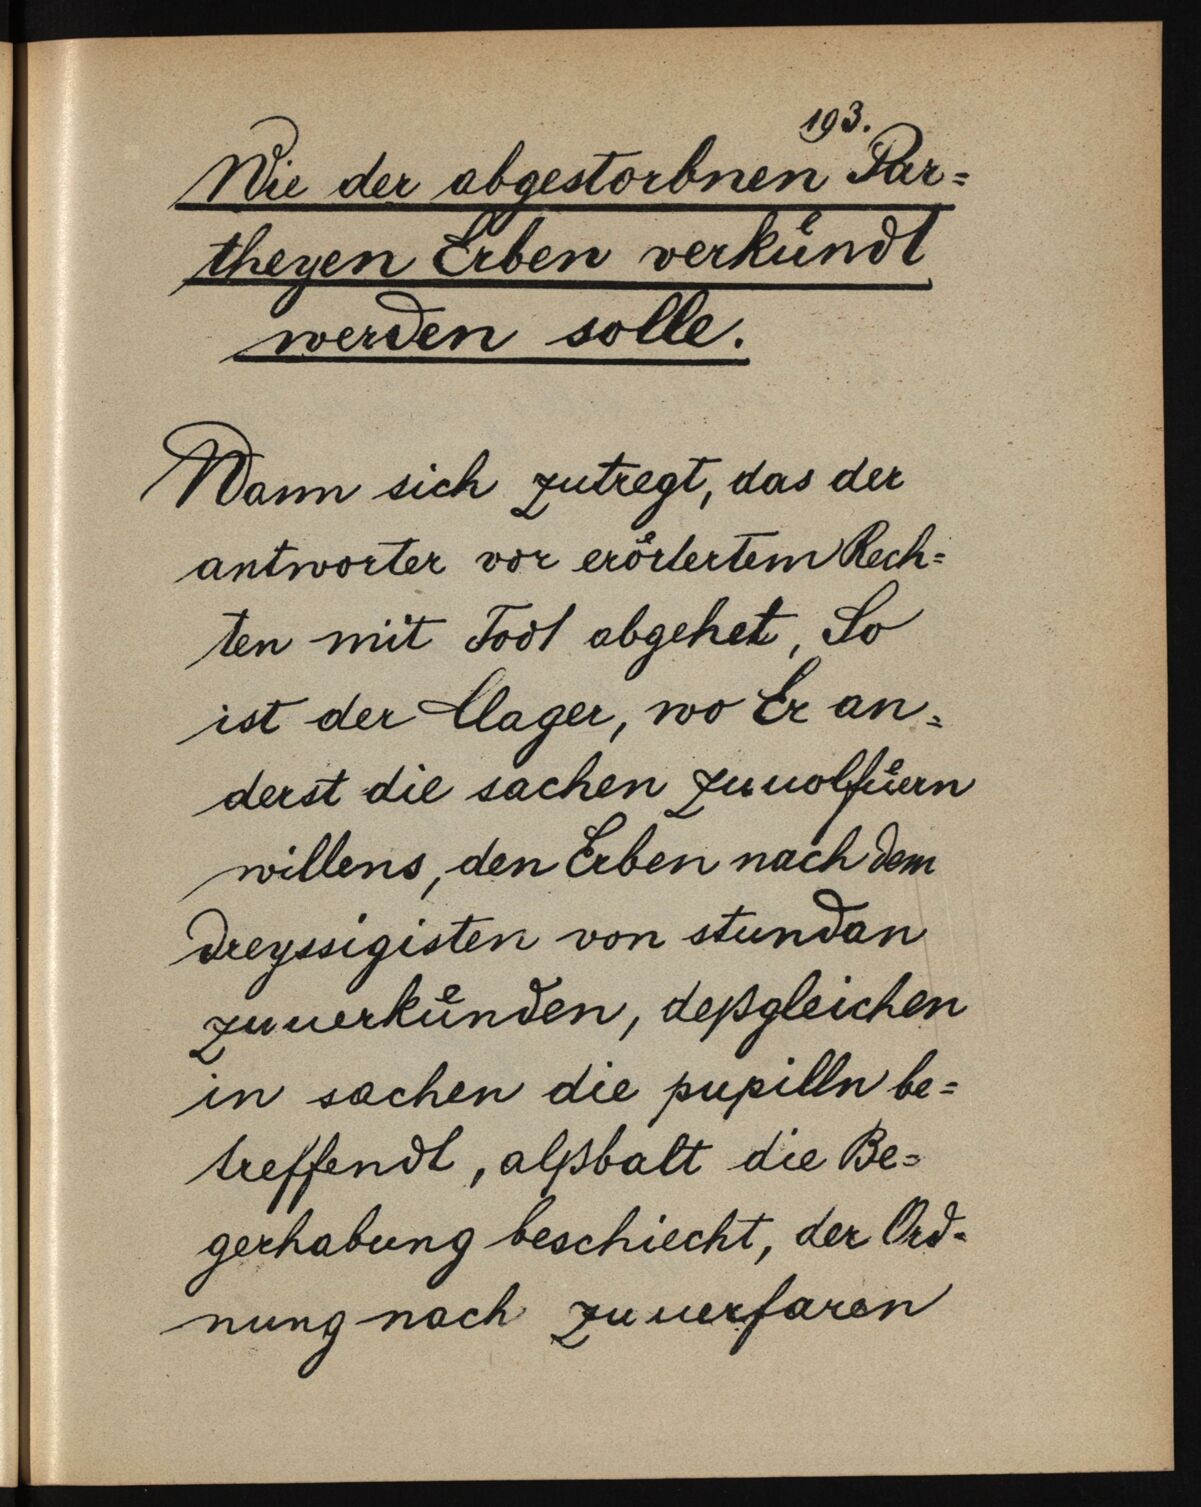 193.
Wie der abgestorbnen Par=
theyen Erben verkůndt
werden solle.
Wann sich zutregt, das der
antworter vor erörtertem Rech=
ten mit Todt abgehet, So
ist der Clager, wo Er an=
derst die sachen zuuolfůern
willens, den Erben nach dem
dreyssigisten von stundan
zuuerkůnden, deßgleichen
in sachen die pupilln be=
treffendt, alßbalt die Be=
gerhabung beschiecht, der Ord=
nung nach zuuerfaren